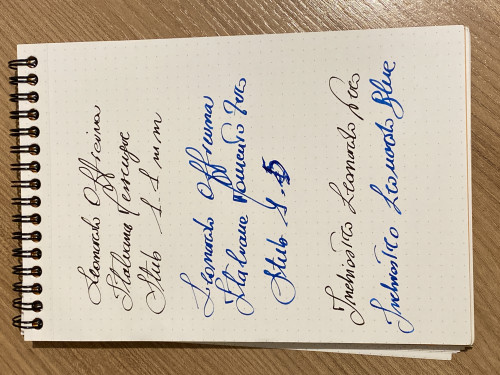 Leonardo Officina
Italiana
Stub mm
Leonardo Officina
Italiana Momento Zero
Stub 1.5
Inchiostro Leonardo Nero
Inchiostro Leonardo Blue